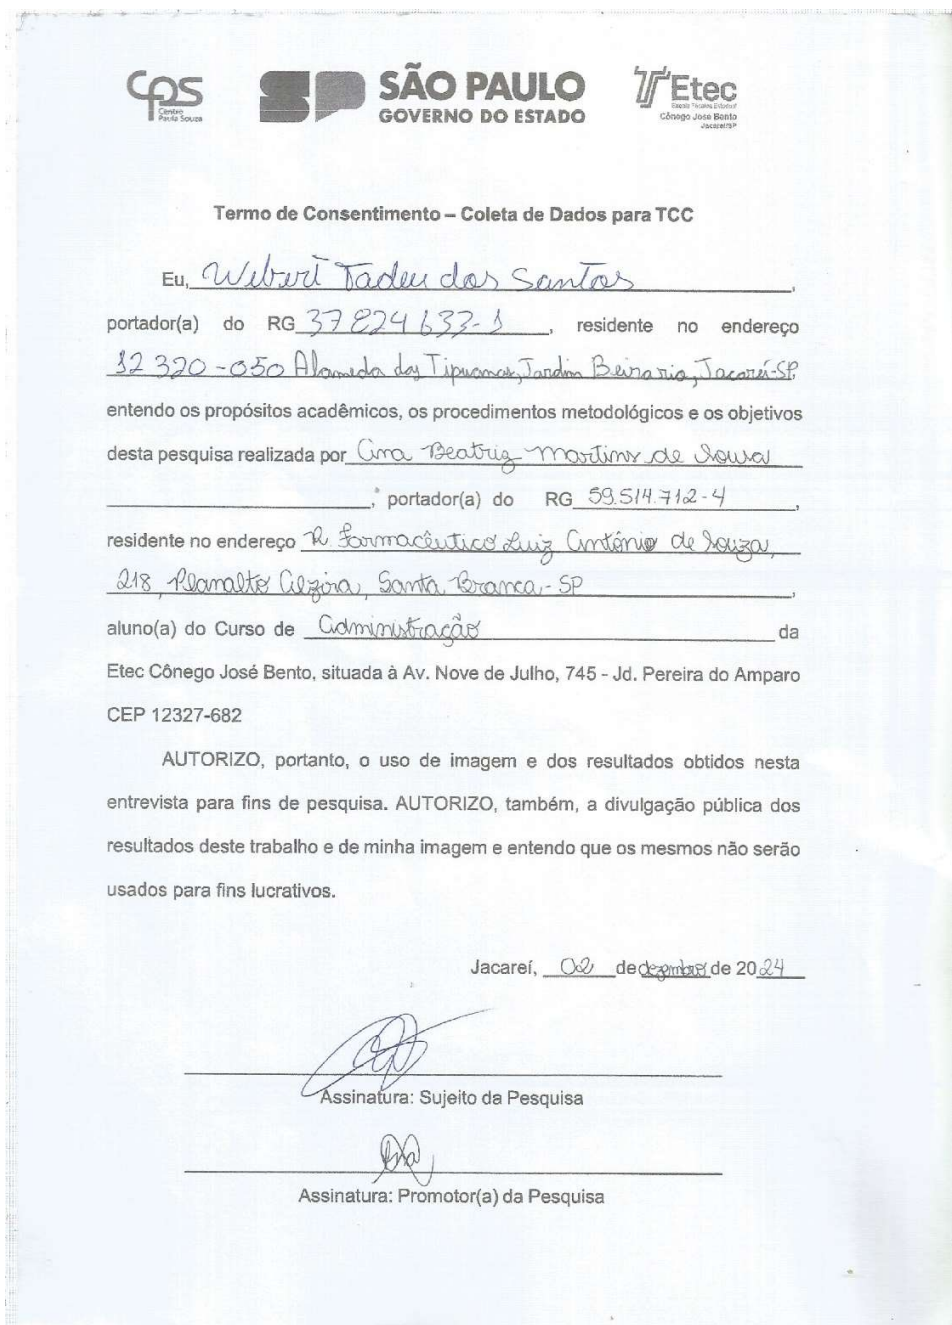 CPS
Centro
Paula Souza
SP SÃO PAULO
GOVERNO DO ESTADO
Etec
Escola Técnica Estadual
Cônego José Bento
Jacareí/SP
Termo de Consentimento – Coleta de Dados para TCC
Eu, Webert Tadeu dos Santos,
portador(a) do RG 37824633-1, residente no endereço
12320-050 Alameda das Tipuanas, Jardim Beirario, Jacareí-SP,
entendo os propósitos acadêmicos, os procedimentos metodológicos e os objetivos
desta pesquisa realizada por Ana Beatriz Martins de Sousa
, portador(a) do RG 59.514.712-4,
residente no endereço R Farmacêutico Luiz Antônio de Souza,
218, Planalto Alzira, Santa Branca - SP,
aluno(a) do Curso de Administração da
Etec Cônego José Bento, situada à Av. Nove de Julho, 745 - Jd. Pereira do Amparo
CEP 12327-682
AUTORIZO, portanto, o uso de imagem e dos resultados obtidos nesta
entrevista para fins de pesquisa. AUTORIZO, também, a divulgação pública dos
resultados deste trabalho e de minha imagem e entendo que os mesmos não serão
usados para fins lucrativos.
Jacareí, 02 de dezembro de 2024
Assinatura: Sujeito da Pesquisa
Ana
Assinatura: Promotor(a) da Pesquisa